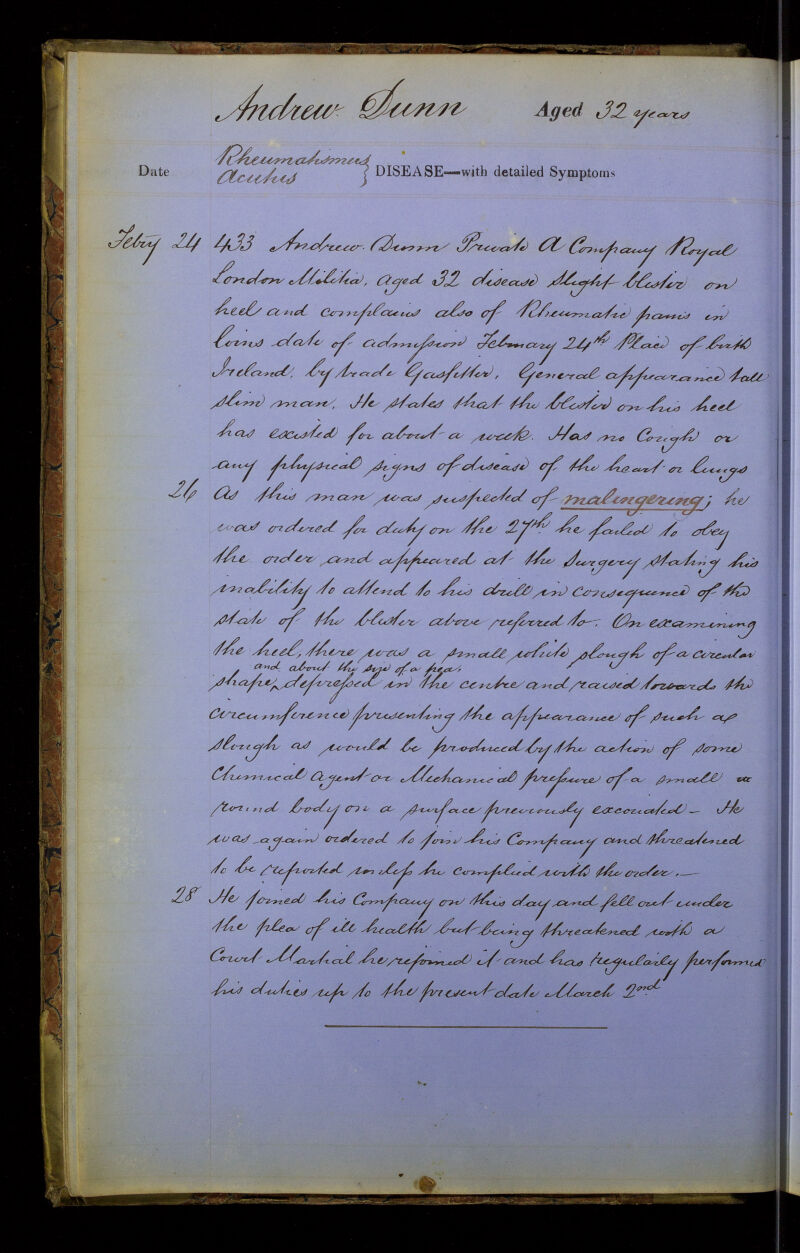 Andrew Dunn Aged 32 years
Rheumatismus
Acutus } DISEASE—with detailed Symptoms
Date
Febry 24 433 Andrew Dunn Private A Company Royal
London Militia, aged 32 disease Slight blister on
heel and complains also of Rheumatic pains in
loins date of admission February 24th Place of birth
Ireland. by trade Gasfitter, General appearance tall
slim man. He states that the blister on his heel
has existed for about a week. Has no Cough or
any physical signs of disease of the heart or lungs
26 As this man was suspected of malingering; he
was ordered for duty on the 27th. he failed to obey
the order and appeared at the Surgery stating his
inability to attend to his drill in consequence of the
state of the blister above referred to. On examining
the heel, there was a small white slough of a circular
and about the size of a pea,
shape, ^ depressed in the centre and raised towards the
circumference presenting the appearance of such a
slough as would be produced by the action of some
Chemical agent or Mechanical pressure of a small
round body on a surface previously excoriated – He
was again ordered to join his Company and threatened
to be reported unless he complied with the order. —
28 He joined his Company on this day and fell out under
the plea of ill health but being threatened with a
Court Martial he rejoined it and has regularly performed
his duties up to the present date March 2nd